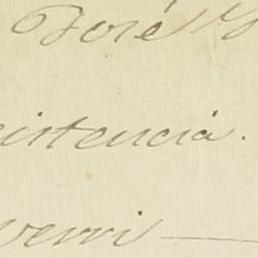 José
istencia.
verri